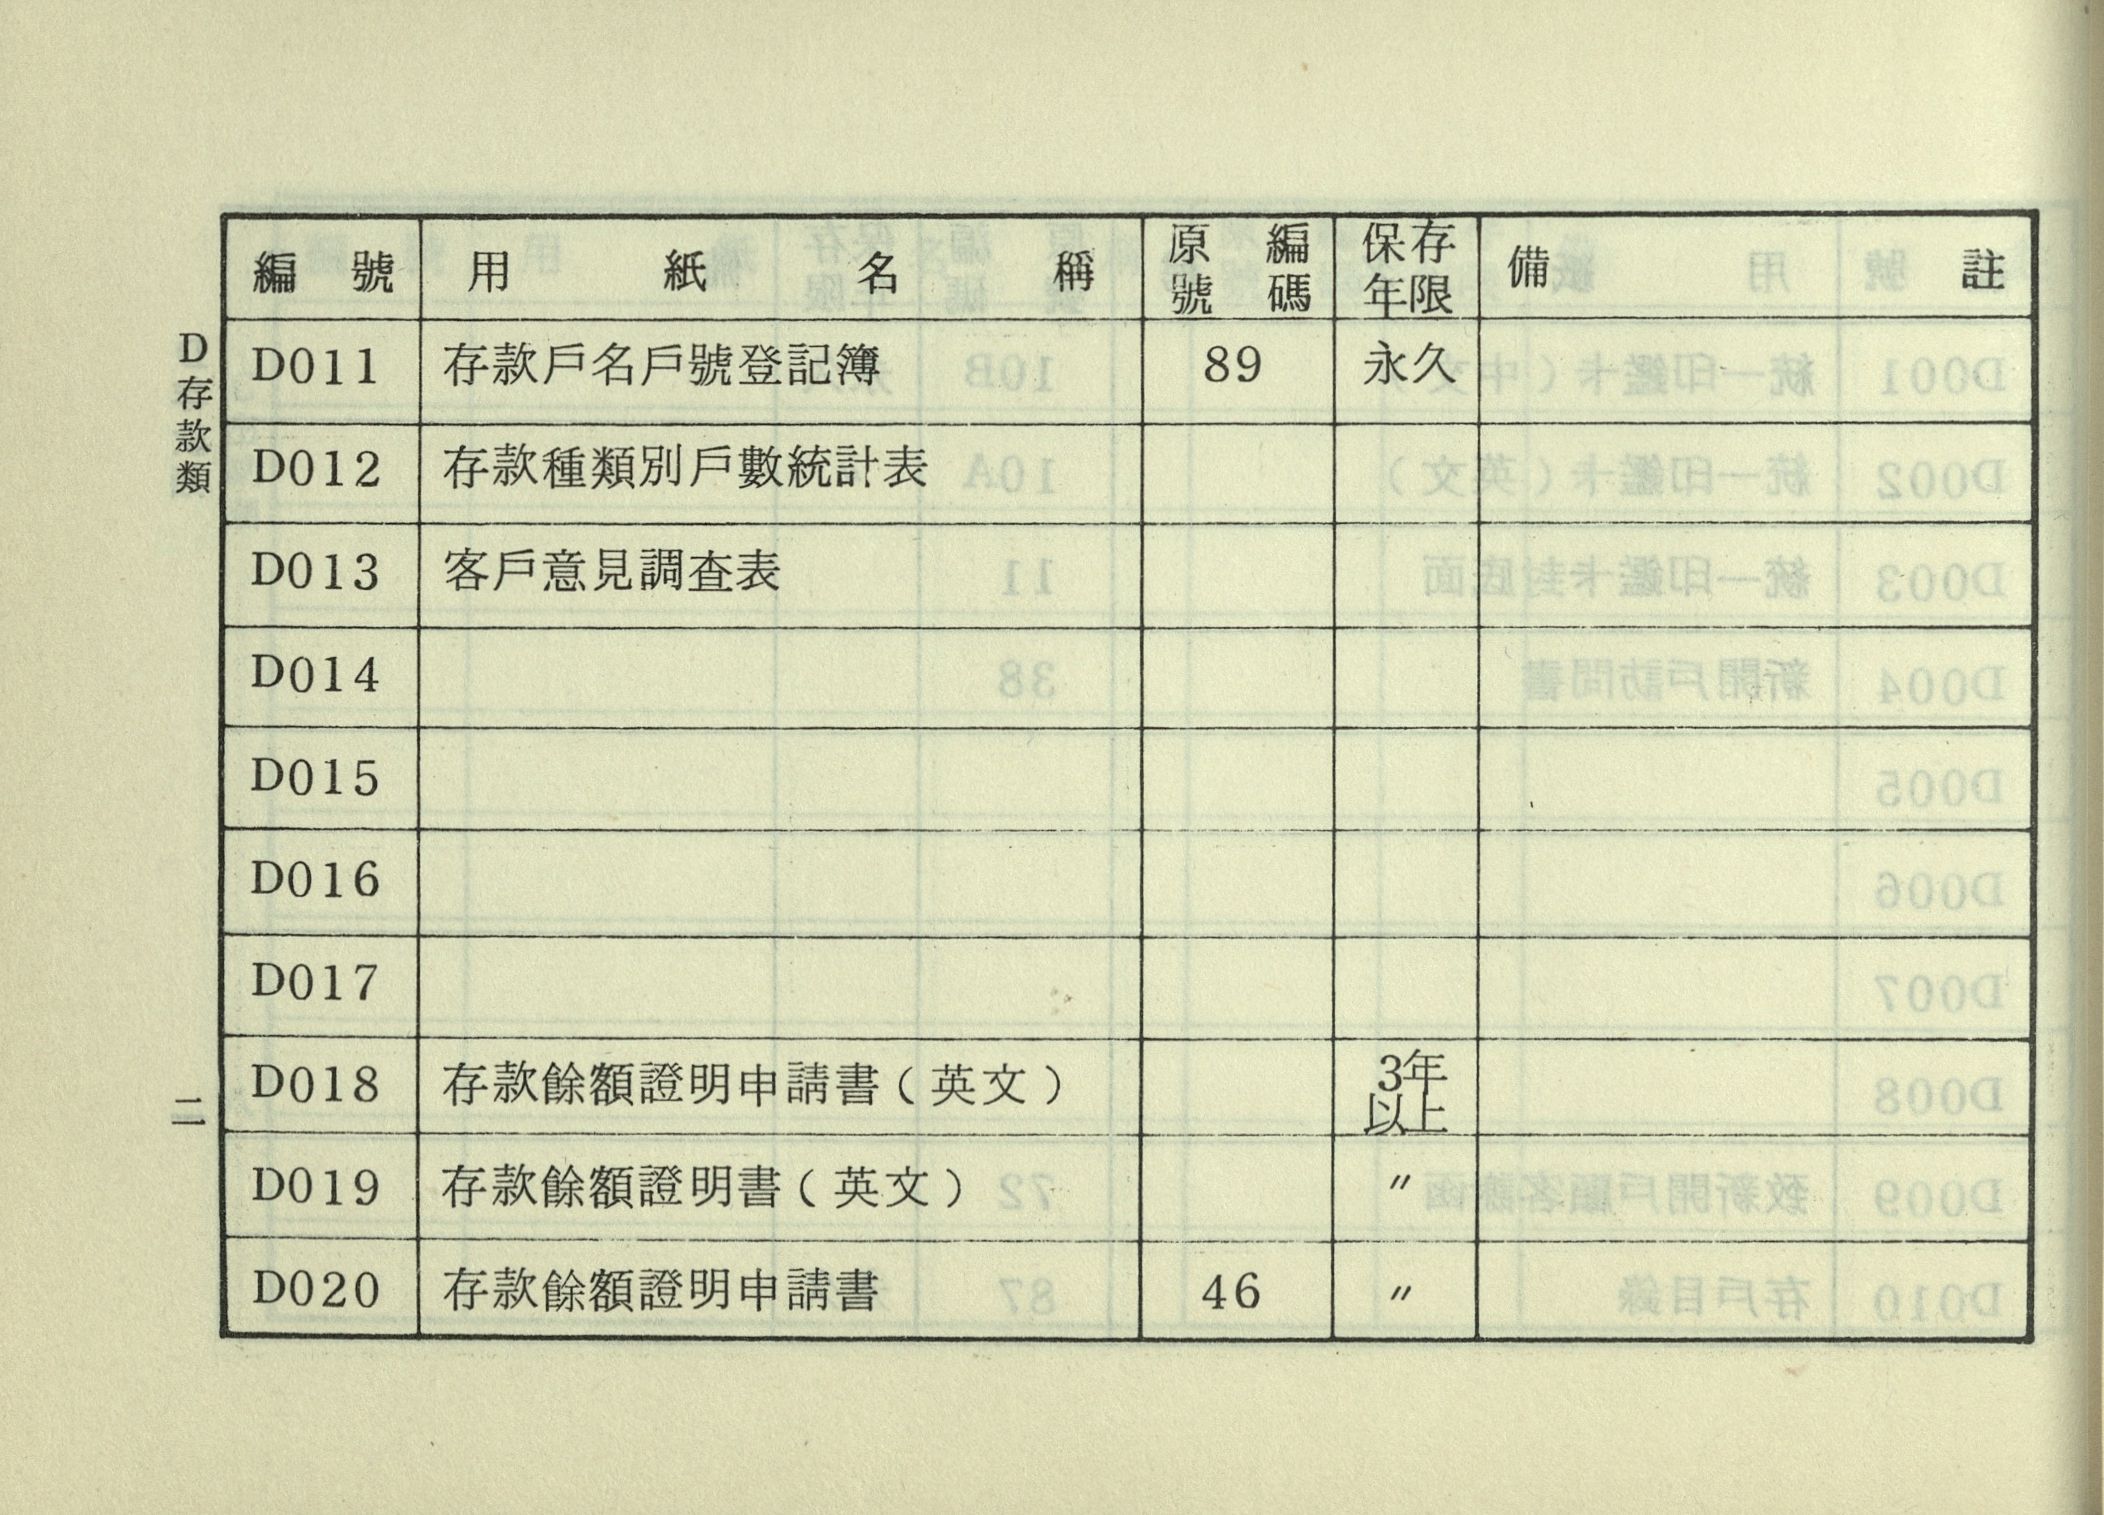 D存款類
編號 用紙名稱 原編號碼 保存年限 備註
D011 存款戶名戶號登記簿 89 永久
D012 存款種類別戶數統計表
D013 客戶意見調查表
D014
D015
D016
D017
D018 存款餘額證明申請書(英文) 3年以上
D019 存款餘額證明書(英文) 〃
D020 存款餘額證明申請書 46 〃
二